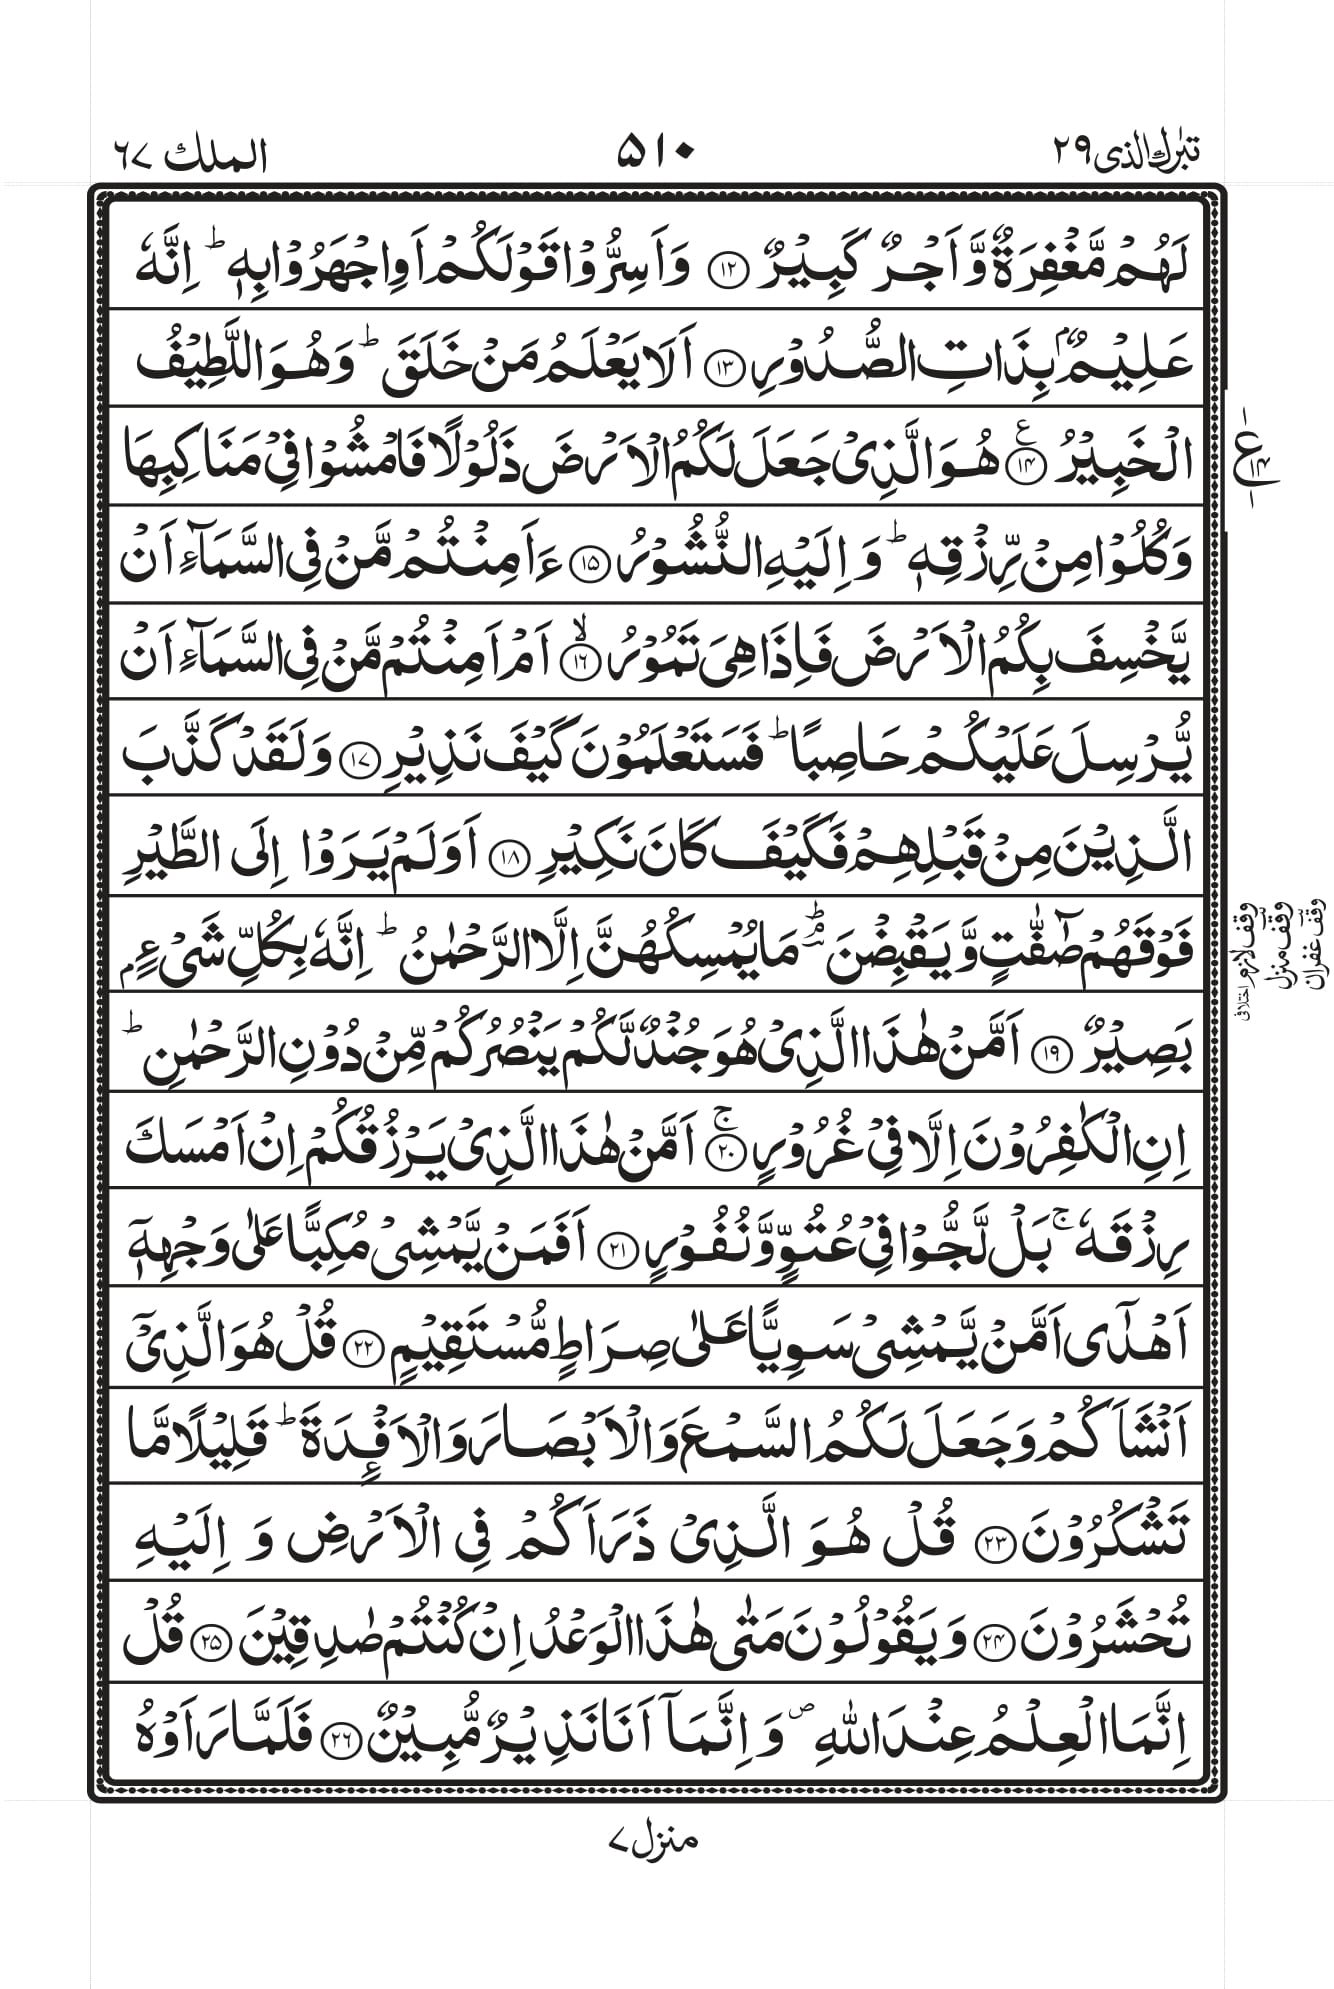 تبٰرك الذی ۲۹
۵۱۰
الملك ۶۷
لَهُمْ مَّغْفِرَةٌ وَّاَجْرٌ كَبِيْرٌ ﴿۱۲﴾ وَاَسِرُّوْا قَوْلَكُمْ اَوِ اجْهَرُوْا بِهٖ ؕ اِنَّهٗ
عَلِيْمٌۢ بِذَاتِ الصُّدُوْرِ ﴿۱۳﴾ اَلَا يَعْلَمُ مَنْ خَلَقَ ؕ وَهُوَ اللَّطِيْفُ
الْخَبِيْرُ ﴿۱۴﴾ ع هُوَ الَّذِیْ جَعَلَ لَكُمُ الْاَرْضَ ذَلُوْلًا فَامْشُوْا فِیْ مَنَاكِبِهَا
ع
۱۴
وَكُلُوْا مِنْ رِّزْقِهٖ ؕ وَاِلَيْهِ النُّشُوْرُ ﴿۱۵﴾ ءَاَمِنْتُمْ مَّنْ فِی السَّمَآءِ اَنْ
يَّخْسِفَ بِكُمُ الْاَرْضَ فَاِذَا هِیَ تَمُوْرُ ﴿۱۶﴾ ۙ اَمْ اَمِنْتُمْ مَّنْ فِی السَّمَآءِ اَنْ
يُّرْسِلَ عَلَيْكُمْ حَاصِبًا ؕ فَسَتَعْلَمُوْنَ كَيْفَ نَذِيْرِ ﴿۱۷﴾ وَلَقَدْ كَذَّبَ
الَّذِيْنَ مِنْ قَبْلِهِمْ فَكَيْفَ كَانَ نَكِيْرِ ﴿۱۸﴾ اَوَلَمْ يَرَوْا اِلَی الطَّيْرِ
فَوْقَهُمْ صٰٓفّٰتٍ وَّيَقْبِضْنَ ؕ مَا يُمْسِكُهُنَّ اِلَّا الرَّحْمٰنُ ؕ اِنَّهٗ بِكُلِّ شَیْءٍۭ
وقف لازم اختلافی
وقف منزل
وقف غفران
بَصِيْرٌ ﴿۱۹﴾ اَمَّنْ هٰذَا الَّذِیْ هُوَ جُنْدٌ لَّكُمْ يَنْصُرُكُمْ مِّنْ دُوْنِ الرَّحْمٰنِ ؕ
اِنِ الْكٰفِرُوْنَ اِلَّا فِیْ غُرُوْرٍ ﴿۲۰﴾ ۚ اَمَّنْ هٰذَا الَّذِیْ يَرْزُقُكُمْ اِنْ اَمْسَكَ
رِزْقَهٗ ۚ بَلْ لَّجُّوْا فِیْ عُتُوٍّ وَّنُفُوْرٍ ﴿۲۱﴾ اَفَمَنْ يَّمْشِیْ مُكِبًّا عَلٰی وَجْهِهٖۤ
اَهْدٰۤی اَمَّنْ يَّمْشِیْ سَوِيًّا عَلٰی صِرَاطٍ مُّسْتَقِيْمٍ ﴿۲۲﴾ قُلْ هُوَ الَّذِیْۤ
اَنْشَاَكُمْ وَجَعَلَ لَكُمُ السَّمْعَ وَالْاَبْصَارَ وَالْاَفْـِٕدَةَ ؕ قَلِيْلًا مَّا
تَشْكُرُوْنَ ﴿۲۳﴾ قُلْ هُوَ الَّذِیْ ذَرَاَكُمْ فِی الْاَرْضِ وَاِلَيْهِ
تُحْشَرُوْنَ ﴿۲۴﴾ وَيَقُوْلُوْنَ مَتٰی هٰذَا الْوَعْدُ اِنْ كُنْتُمْ صٰدِقِيْنَ ﴿۲۵﴾ قُلْ
اِنَّمَا الْعِلْمُ عِنْدَ اللّٰهِ ۪ وَاِنَّمَاۤ اَنَا نَذِيْرٌ مُّبِيْنٌ ﴿۲۶﴾ فَلَمَّا رَاَوْهُ
منزل ۷